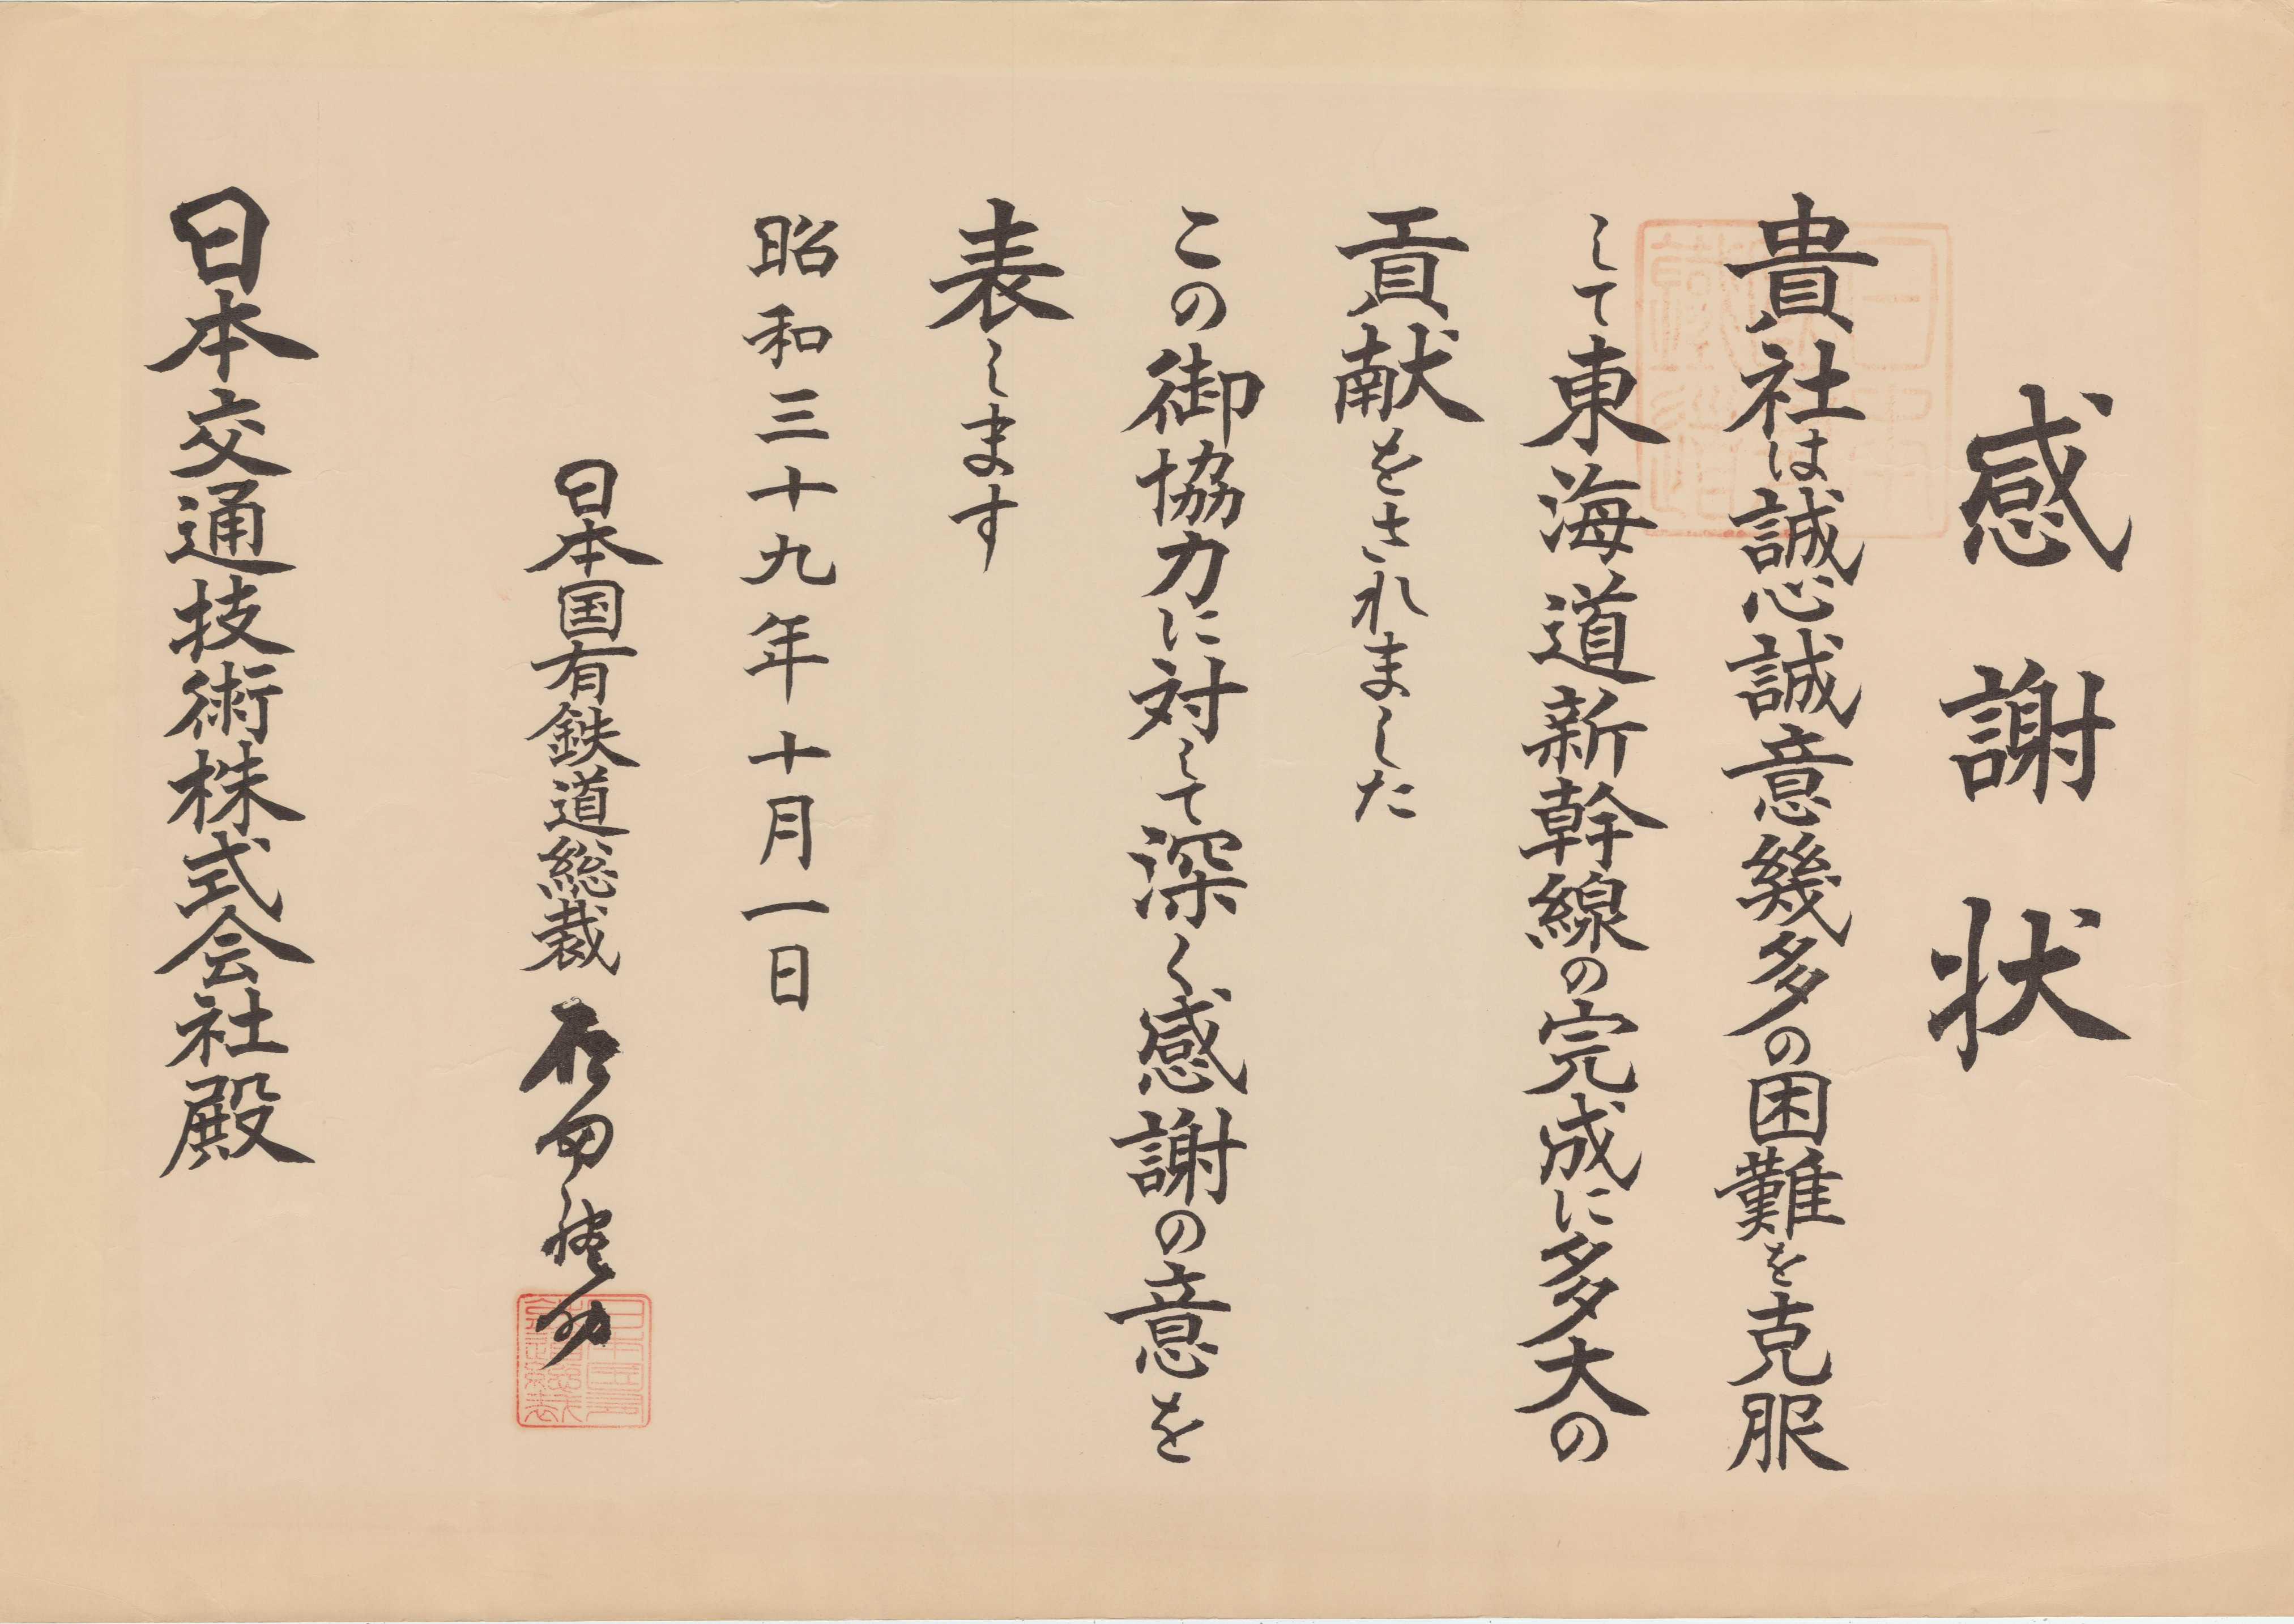 感謝状
貴社は誠心誠意幾多の困難を克服
して東海道新幹線の完成に多大の
貢献をされました
この御協力に対して深く感謝の意を
表します
昭和三十九年十月一日
日本国有鉄道総裁 石田禮助
日本交通技術株式会社殿